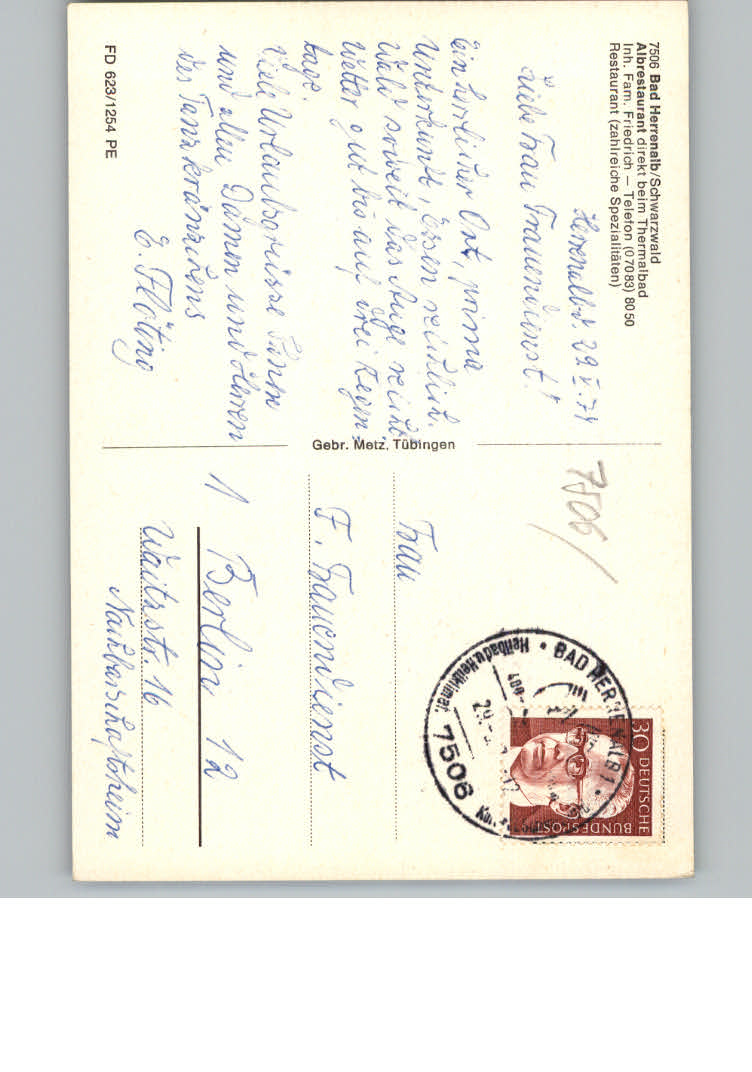 7506 Bad Herrenalb/Schwarzwald
Albrestaurant direkt beim Thermalbad
Inh. Fam. Friedrich — Telefon (07083) 8050
Restaurant (zahlreiche Spezialitäten)
Herrenalb d. 29.V.74
Liebe Frau Frauendienst!
Ein herrlicher Ort, prima
Unterkunft, Essen reichlich.
Wald soweit das Auge reicht.
Wetter gut bis auf drei Regen-
tage.
Viele Urlaubsgrüsse Ihnen
und allen Damen und Herren
des Tanzkränzchens
E. Flöting
FD 623/1254 PE
Gebr. Metz, Tübingen
7506/
Frau
F. Frauendienst
1 Berlin 12
Waitzstr. 16
Nachbarschaftsheim
30 DEUTSCHE
BUNDESPOST
BAD HERRENALB 1
7506
Heilbad u Heilklimat.